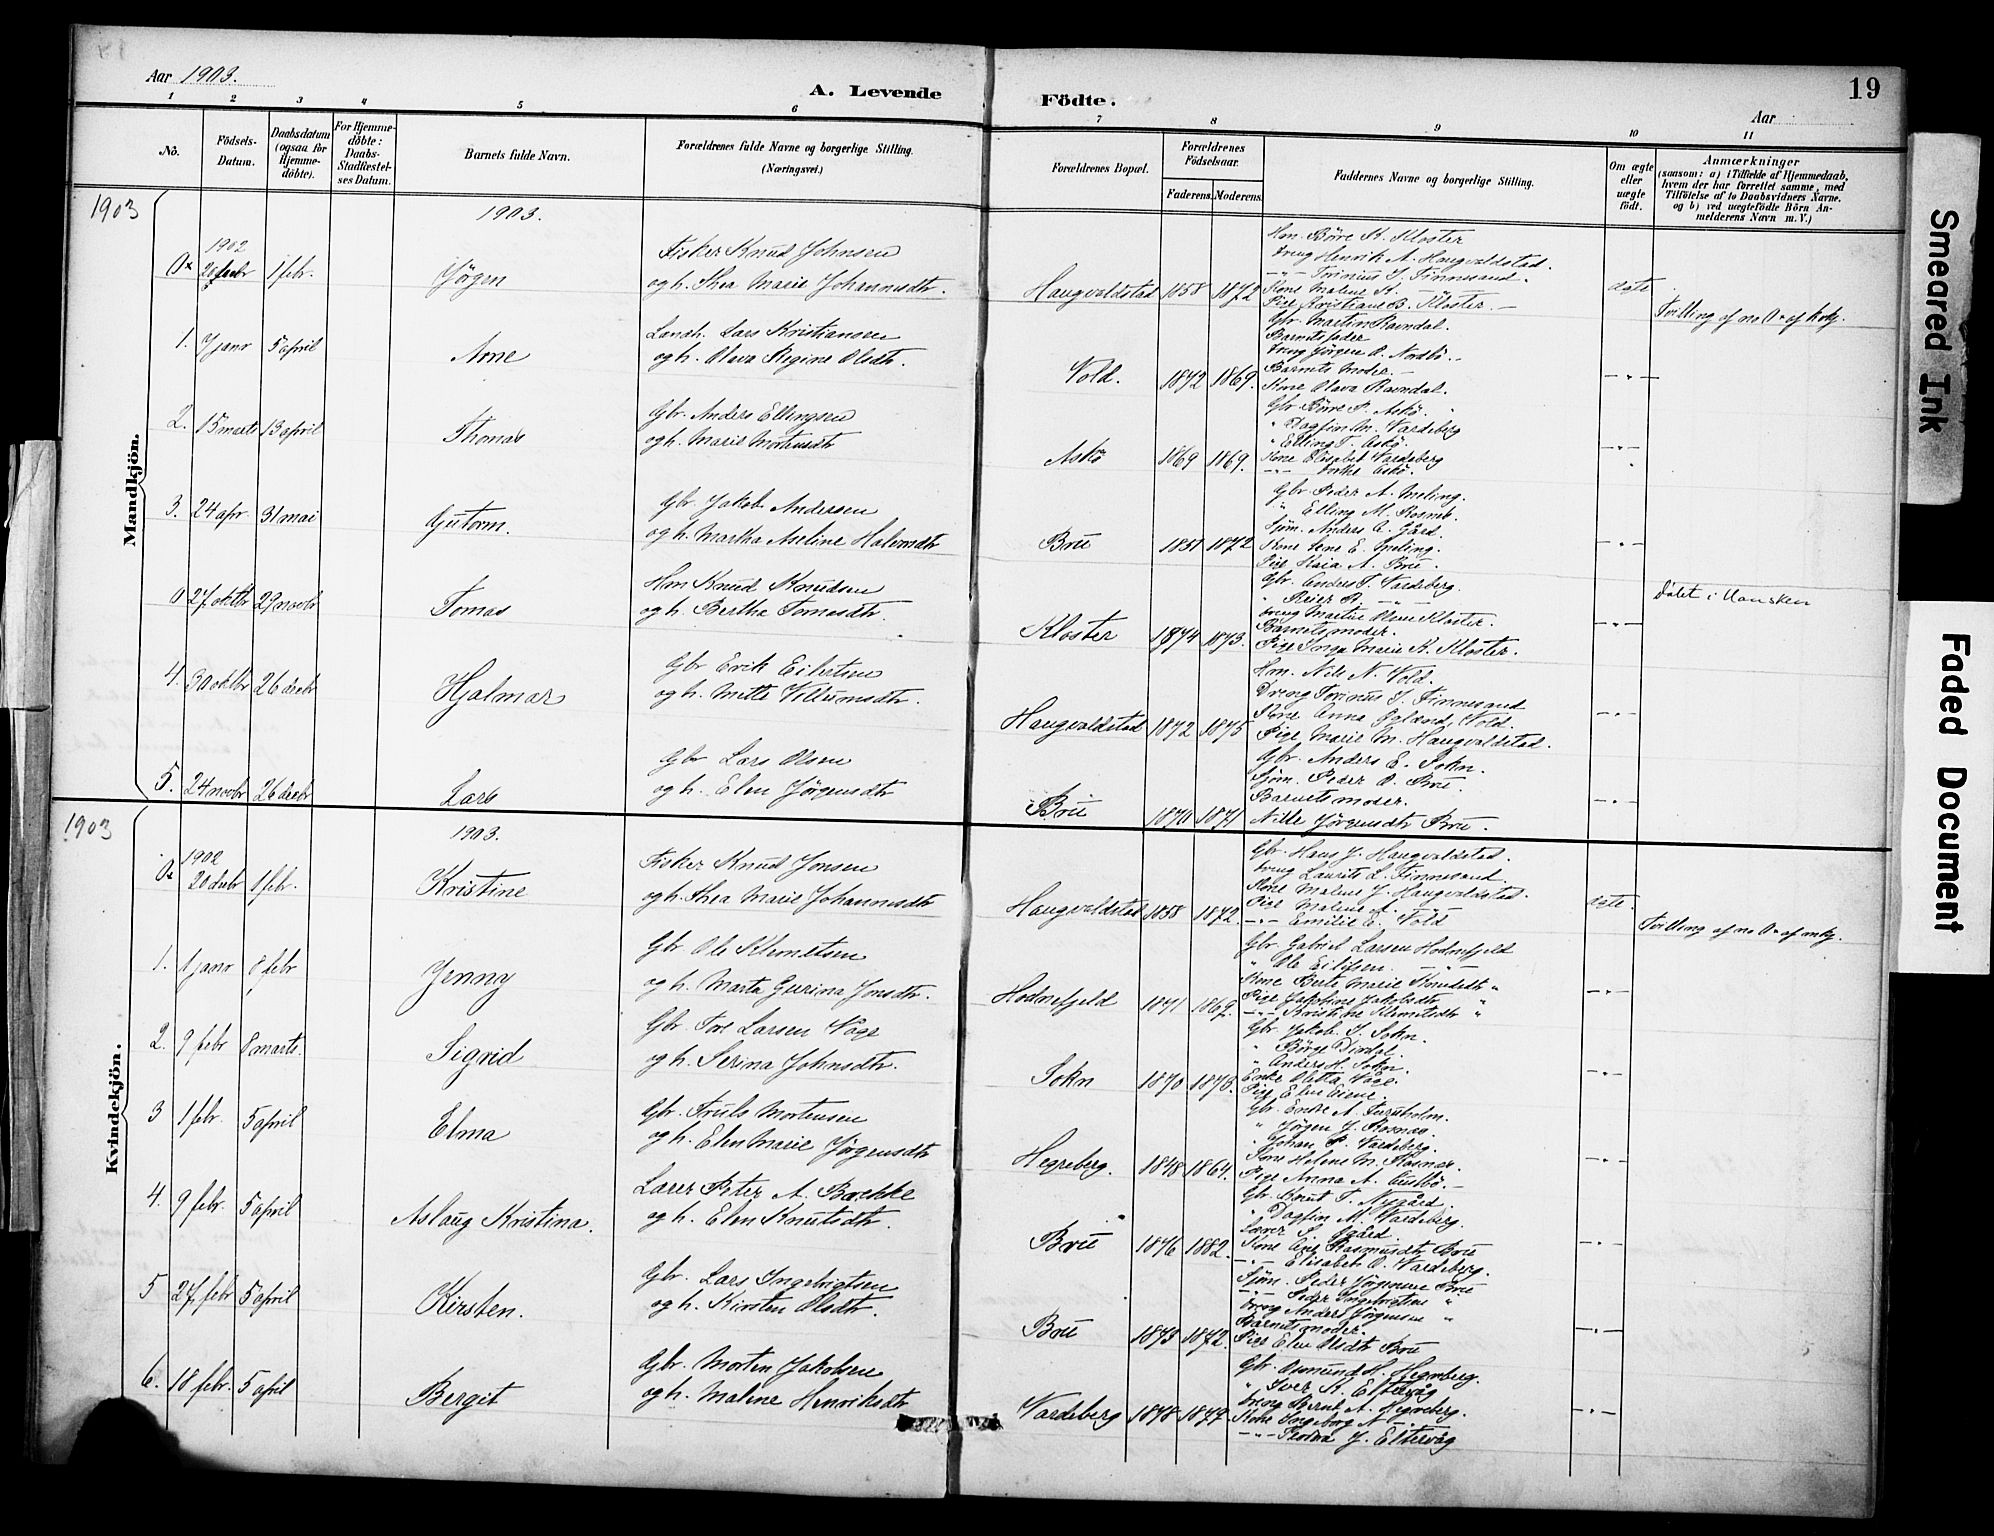 Aar 1903.
A. Levende Födte.
19
Aar
1 2 3 4 5 6 7 8 9 10 11
Nô.
Födsels-Datum.
Daabsdatum (ogsaa for Hjemmedöbte).
For Hjemmedöbte: Daabs-Stadfæstelses Datum.
Barnets fulde Navn.
Forældrenes fulde Navne og borgerlige Stilling. (Næringsvei.)
Forældrenes Bopæl.
Forældrenes Födselsaar.
Faderens. Moderens.
Faddernes Navne og borgerlige Stilling.
Om ægte eller uægte födt.
Anmærkninger
(saasom: a) i Tilfælde af Hjemmedaab, hvem der har forrettet samme, med Tilföielse af to Daabsvidners Navne. og b) ved uægtefödte Börn Anmelderens Navn m. V.)
Mandkjön.
1903
1903.
1902
0x 20 decbr 1 febr.
Jørgen
Fisker Knud Johnsen
og h. Thea Marie Johannesdtr.
Haugvaldstad 1858 1872
Hm. Börre K. Kloster
Dreng Henrik A. Haugvaldstad.
-"- Torinius J. Finnesand.
Kone Malene K. -"-
Pige Kristiane B. Kloster.
ægte
Tvilling af no 0x af kvkj.
1. 7 janr 5 april
Arne
Landh. Lars Kristiansen
og h. Olava Regine Olsdtr.
Vold. 1872 1869.
Gbr. Martin Ravndal.
Barnets fader
Dreng Jørgen O. Nordbö.
Barnets Moder.
Kone Olava Ravndal.
-"-
2. 15 marts 13 april
Thomas
Gbr. Anders Ellingsen
og h. Marie Mortensdtr
Askö 1869 1869.
Gbr Börre P. Askö.
" Dagfin M. Vardeberg
" Elling T. Askö.
Kone Elisabet Vardeberg
-"- Askö.
-"-
3. 24 apr. 31 mai
Gutorm.
Gbr. Jakob Andersen
og h. Martha Aseline Halvorsdtr
Bru 1872
Gbr Peder A. Meling.
" Elling M.
Sjöm. Anders A. Gård.
Kone Lene E. Meling.
Pige Kaia A. Bru.
-"-
0 27. oktbr 29 novbr
Tomas
Hm Knud Knudsen
og h. Bertha Tomasdtr.
Kloster 1874 1873.
Gbr. Anders T. Vardeberg.
" Reier R. -"-
Dreng Martin Olsen Kloster.
Barnets moder.
Pige Inga Marie K. Kloster.
-"-
4. 30 oktbr 26 decbr
Hjalmar
Gbr Erik Eilertsen
og h. Mette Villumsdtr.
Haugvaldstad 1872 1875
Hm. Nils N. Vold.
Dreng Torinius J. Finnesand
Kone Anna Vold.
Pige Marie M. Haugvaldstad.
-"-
5. 24 novbr 26 decbr
Lars
Gbr Lars Olsen
og h. Elen Jørgensdtr
Bru 1870 1871
Gbr. Anders E. Sokn.
Sjöm. Peder O. Bru.
Barnets moder.
Nille Jørgensdtr Bru.
-"-
Kvindekjön.
1903
1903.
1902
0x 20 decbr 1 febr.
Kristine
Fisker Knud Jonsen
og h. Thea Marie Johannesdtr
Haugvaldstad 1858 1872.
Gbr. Hans J. Haugvaldstad.
Dreng Laurits L. Finnesand.
Kone Malene J. Haugvaldstad.
Pige Malene A. -"-
-"- Emilie E. Vold
ægte.
Tvilling af no 0x af mkj.
1. 1 janr 8 febr
Jenny
Gbr. Ole Klemetsen
og h. Marta Gurina Jonsdtr.
Hodnefjeld 1871 1869.
Gbr. Gabriel Larsen Hodnefjeld
" Ole Eilifsen -"-
Kone Berte Marie Knudsdtr "
Pige Jakobine Jakobsdtr "
-"- Kristine Klemetsdtr "
-"-
2. 9 febr 8 marts.
Sigrid
Gbr. Tore Larsen Våge
og h. Serina Johnsdtr.
Sokn 1870 1873.
Gbr. Jakob I. Sokn.
" Börge Dirdal.
" Anders H. Sokn.
Enke Oletta Våge.
Pige Eline Eiene.
-"-
3 1 febr. 5 april
Elma
Gbr. Truls Mortensen
og h. Elen Marie Jørgensdtr
Hegreberg. 1848 1864.
Gbr. Endre A. Furuholm.
" Jørgen J. Rosnes.
" Johan P. Vardeberg.
Kone Helene M. Rosnes.
Pige Anna A. Austbö.
-"-
4. 9 febr. 5 april
Aslaug Kristina.
Lærer Peter A. Bække
og h. Elen Knutsdtr.
Bru 1876 1882.
Gbr. Knut T. Nygård
" Dagfin M. Vardeberg.
Lærer S. Gård.
Kone Ane Rasmusdtr Bru
-"- Elisabet O. Vardeberg.
-"-
5 27. febr 5 april
Kirsten.
Gbr. Lars Ingebrigtsen
og h. Kirsten Olsdtr.
Bru 1873 1872.
Sjöm. Peder Jørgensen Bru
-"- Peder Ingebrigtsen "
Dreng Anders Jørgensen "
Barnets moder.
Pige Elen Olsdtr Bru
-"-
6. 18 febr. 5 april
Bergit
Gbr. Morten Jakobsen
og h. Malene Henriksdtr
Vardeberg 1848 1877.
Gbr. Osmund H. Hegreberg.
" Iver K. Eltervåg
Dreng Bernt A. Hegreberg.
Kone Ingeborg A -"-
-"- J. Eltervåg
-"-
Smeared Ink
Faded Document